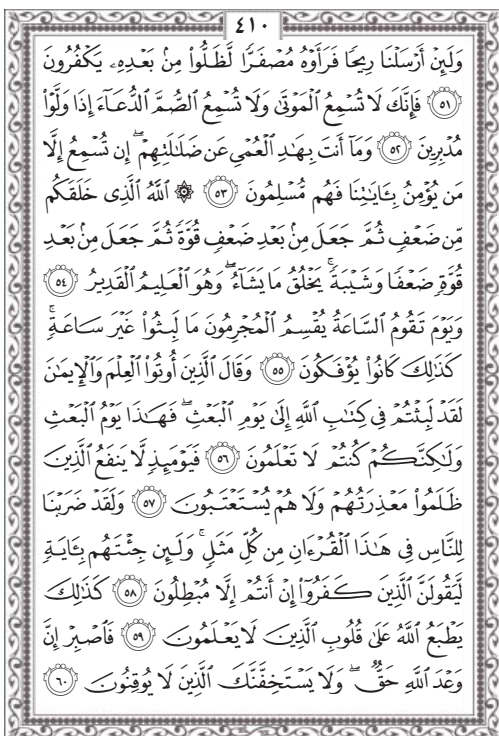 ٤١٠
وَلَئِنْ أَرْسَلْنَا رِيحًا فَرَأَوْهُ مُصْفَرًّا لَّظَلُّوا۟ مِنۢ بَعْدِهِۦ يَكْفُرُونَ
٥١ فَإِنَّكَ لَا تُسْمِعُ ٱلْمَوْتَىٰ وَلَا تُسْمِعُ ٱلصُّمَّ ٱلدُّعَآءَ إِذَا وَلَّوْا۟
مُدْبِرِينَ ٥٢ وَمَآ أَنتَ بِهَٰدِ ٱلْعُمْىِ عَن ضَلَٰلَتِهِمْ ۖ إِن تُسْمِعُ إِلَّا
مَن يُؤْمِنُ بِـَٔايَٰتِنَا فَهُم مُّسْلِمُونَ ٥٣ ۞ ٱللَّهُ ٱلَّذِى خَلَقَكُم
مِّن ضَعْفٍ ثُمَّ جَعَلَ مِنۢ بَعْدِ ضَعْفٍ قُوَّةً ثُمَّ جَعَلَ مِنۢ بَعْدِ
قُوَّةٍ ضَعْفًا وَشَيْبَةً ۚ يَخْلُقُ مَا يَشَآءُ ۖ وَهُوَ ٱلْعَلِيمُ ٱلْقَدِيرُ ٥٤
وَيَوْمَ تَقُومُ ٱلسَّاعَةُ يُقْسِمُ ٱلْمُجْرِمُونَ مَا لَبِثُوا۟ غَيْرَ سَاعَةٍ ۚ
كَذَٰلِكَ كَانُوا۟ يُؤْفَكُونَ ٥٥ وَقَالَ ٱلَّذِينَ أُوتُوا۟ ٱلْعِلْمَ وَٱلْإِيمَٰنَ
لَقَدْ لَبِثْتُمْ فِى كِتَٰبِ ٱللَّهِ إِلَىٰ يَوْمِ ٱلْبَعْثِ ۖ فَهَٰذَا يَوْمُ ٱلْبَعْثِ
وَلَٰكِنَّكُمْ كُنتُمْ لَا تَعْلَمُونَ ٥٦ فَيَوْمَئِذٍ لَّا يَنفَعُ ٱلَّذِينَ
ظَلَمُوا۟ مَعْذِرَتُهُمْ وَلَا هُمْ يُسْتَعْتَبُونَ ٥٧ وَلَقَدْ ضَرَبْنَا
لِلنَّاسِ فِى هَٰذَا ٱلْقُرْءَانِ مِن كُلِّ مَثَلٍ ۚ وَلَئِن جِئْتَهُم بِـَٔايَةٍ
لَّيَقُولَنَّ ٱلَّذِينَ كَفَرُوٓا۟ إِنْ أَنتُمْ إِلَّا مُبْطِلُونَ ٥٨ كَذَٰلِكَ
يَطْبَعُ ٱللَّهُ عَلَىٰ قُلُوبِ ٱلَّذِينَ لَا يَعْلَمُونَ ٥٩ فَٱصْبِرْ إِنَّ
وَعْدَ ٱللَّهِ حَقٌّ ۖ وَلَا يَسْتَخِفَّنَّكَ ٱلَّذِينَ لَا يُوقِنُونَ ٦٠